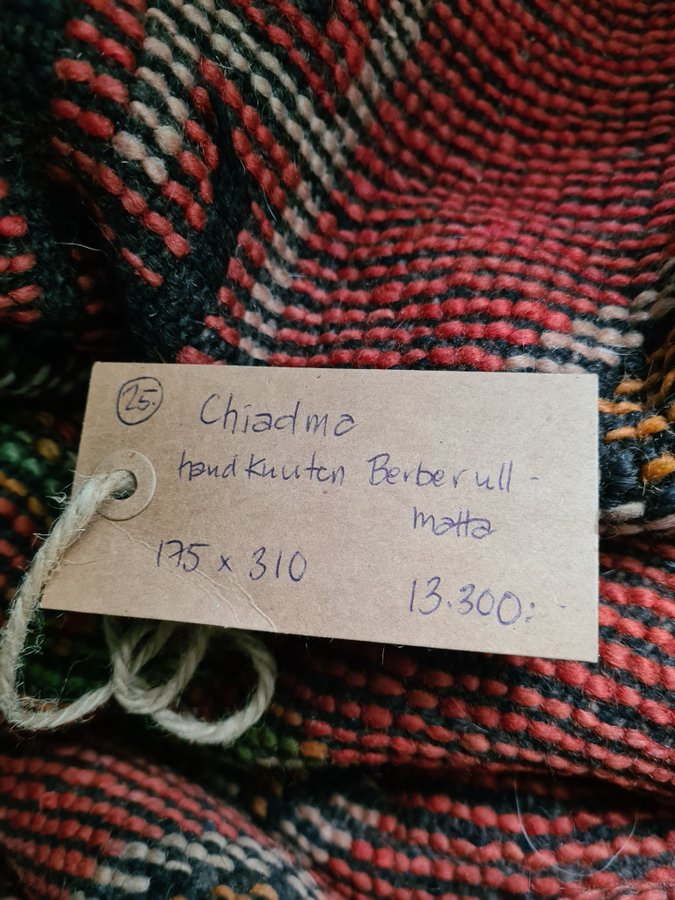 25.
Chiadma
handknuten Berber ull-
matta
175 x 310
13.300:-